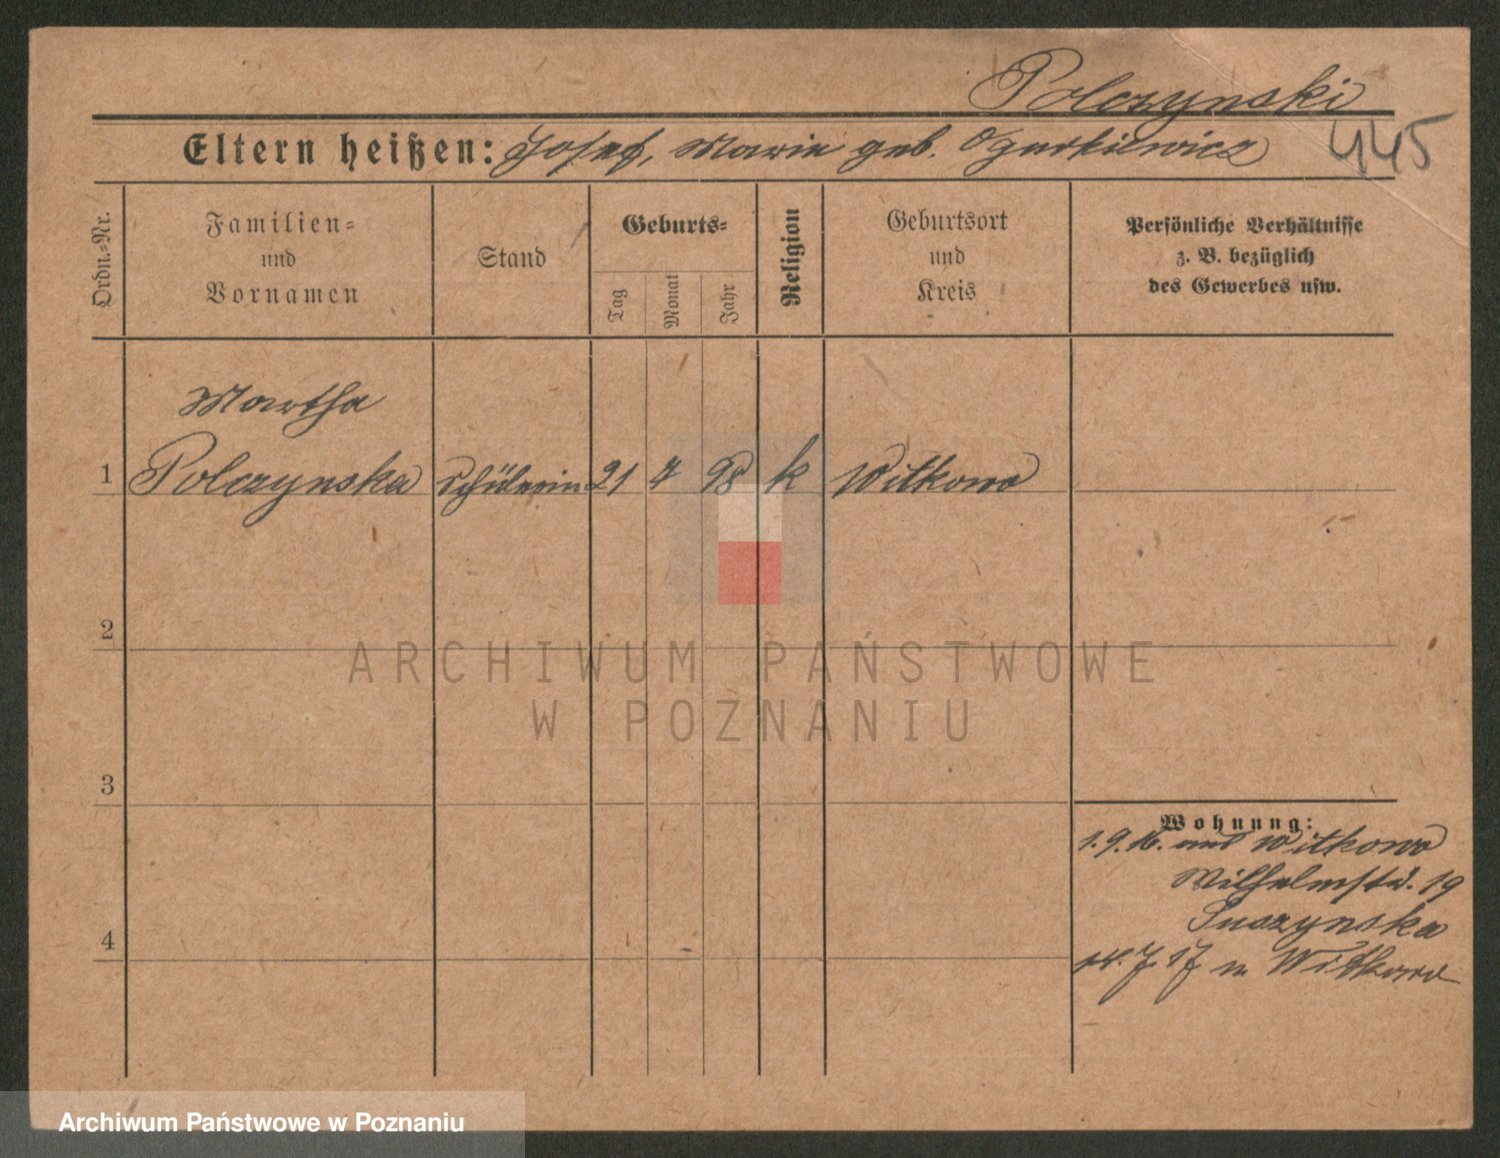 Polczynski
445
Eltern heißen: Josef, Marie geb. Ogurkiewicz
Ordn.-Nr.
Familien-
und
Vornamen
Stand
Geburts-
Tag
Monat
Jahr
Religion
Geburtsort
und
Kreis
Persönliche Verhältnisse
z. B. bezüglich
des Gewerbes usw.
Martha
1 Polczynska Schülerin 21 7 98 k Witkowo
2
ARCHIWUM PAŃSTWOWE
W POZNANIU
3
Wohnung:
1.9.16. aus Witkowo
Wilhelmstr. 19
4
7 17 n Witkowo
Archiwum Państwowe w Poznaniu